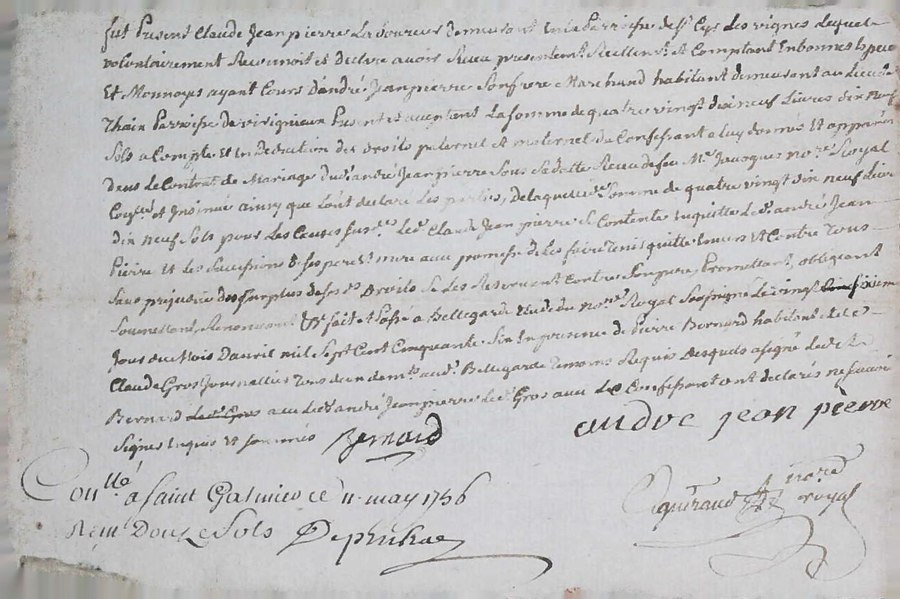 fut Present Claude Jeanpierre Laboureur demeurant en la Parroisse de St Cyr des vignes lequel
volontairement Reconnoit et declare avoir Receu presentemt Reellemt et Comptant En bonnes Espece
Et Monnoyes ayant Cours d'andré Jeanpierre Son frere Marchand habitant demeurant au Lieu de
Thain Parroisse de virigneux Present et acceptant La Somme de quatre vingt dix neuf Livres dix neuf
Sols a Compte et En Deduction des Droits paternel et maternel du Confessant a luy donnés Et
dans Le Contrat de Mariage dud andré Jeanpierre Sous Sa datte Receu de feu Me Jacques nore Royal
et Insinué ainsy que l'ont declaré Les parties, de laquelle Somme de quatre vingt dix neuf Livre
dix neuf Sols pour Les Causes Susd Led Claude Jeanpierre Se Contente en quitte Led andré Jean
Pierre Et Les Succession de Ses pere et mere avec promesse de Les faire tenir quitte Envers Et Contre Tous
Sans prejudice du Surplus de Ses Droits Se Les Reservant Contre Promettant, obligeant
Soumettant, Renonceant &c fait et Passé a Bellegarde Etude du nore Royal Soussigné Le vingt Sixieme
Jour du Mois D'avril mil Sept Cent Cinquante Six En presence de Pierre Bernard habitant Et de
Claude Gros Journallier Tous deux demts aud Bellegarde Temoins Requis Desquels a Signé Led
Bernard Led Gros avec Led andré Jeanpierre Led Gros avec Le Confessant ont declarés ne Scavoir
Signer Enquis Et Sommés Bernard
andre jean pierre
Conllé a Saint Galmier ce 11 may 1756
Reçu Douze Sols
nore royal